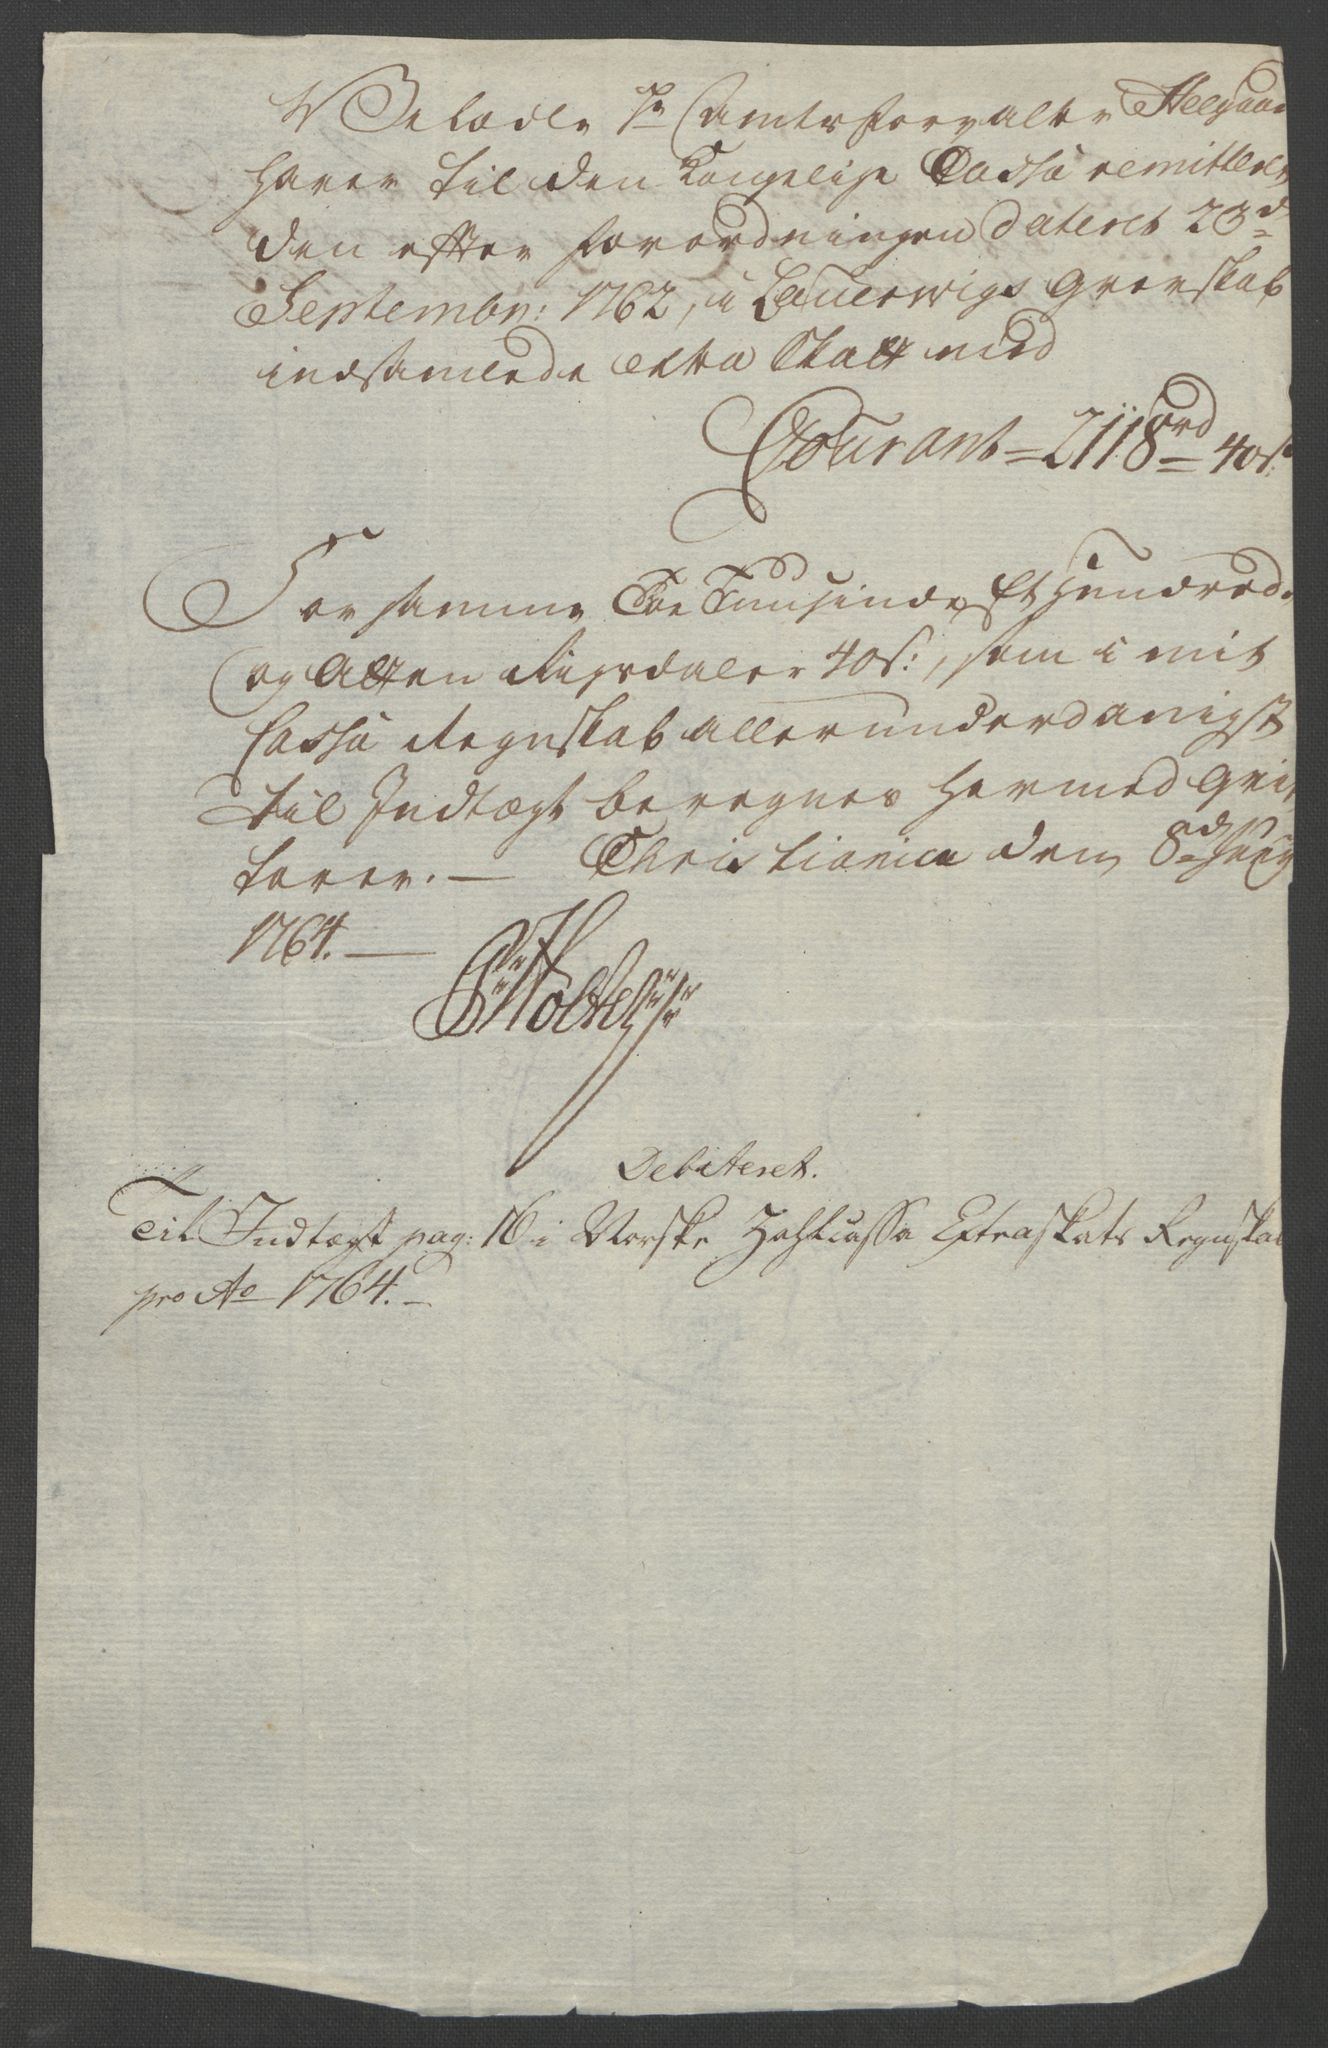 Velædle Hr Camerforvalter Steegaar
haver til den Kongelige Cassa remitteret
den efter forordningen dateret 23d
Septembr: 1762, i Laurwigs Grevskab
indsamlede Extra Skatt med
Courant = 2118 rd 40 s:
For samme Toe Tuusinde, Et Hundrede
og Atten Rigsdaler 40 s:, som i mit
Cassa Regnskab allerunderdanigst
til Indtægt beregnes hermed qvit-
terer. — Christiania den 8d
1764. —
Holte
Debiteret.
Til Indtægt pag: 16 i Norske Zahlcassa Extraskats Regnskab
pro Ao 1764. —